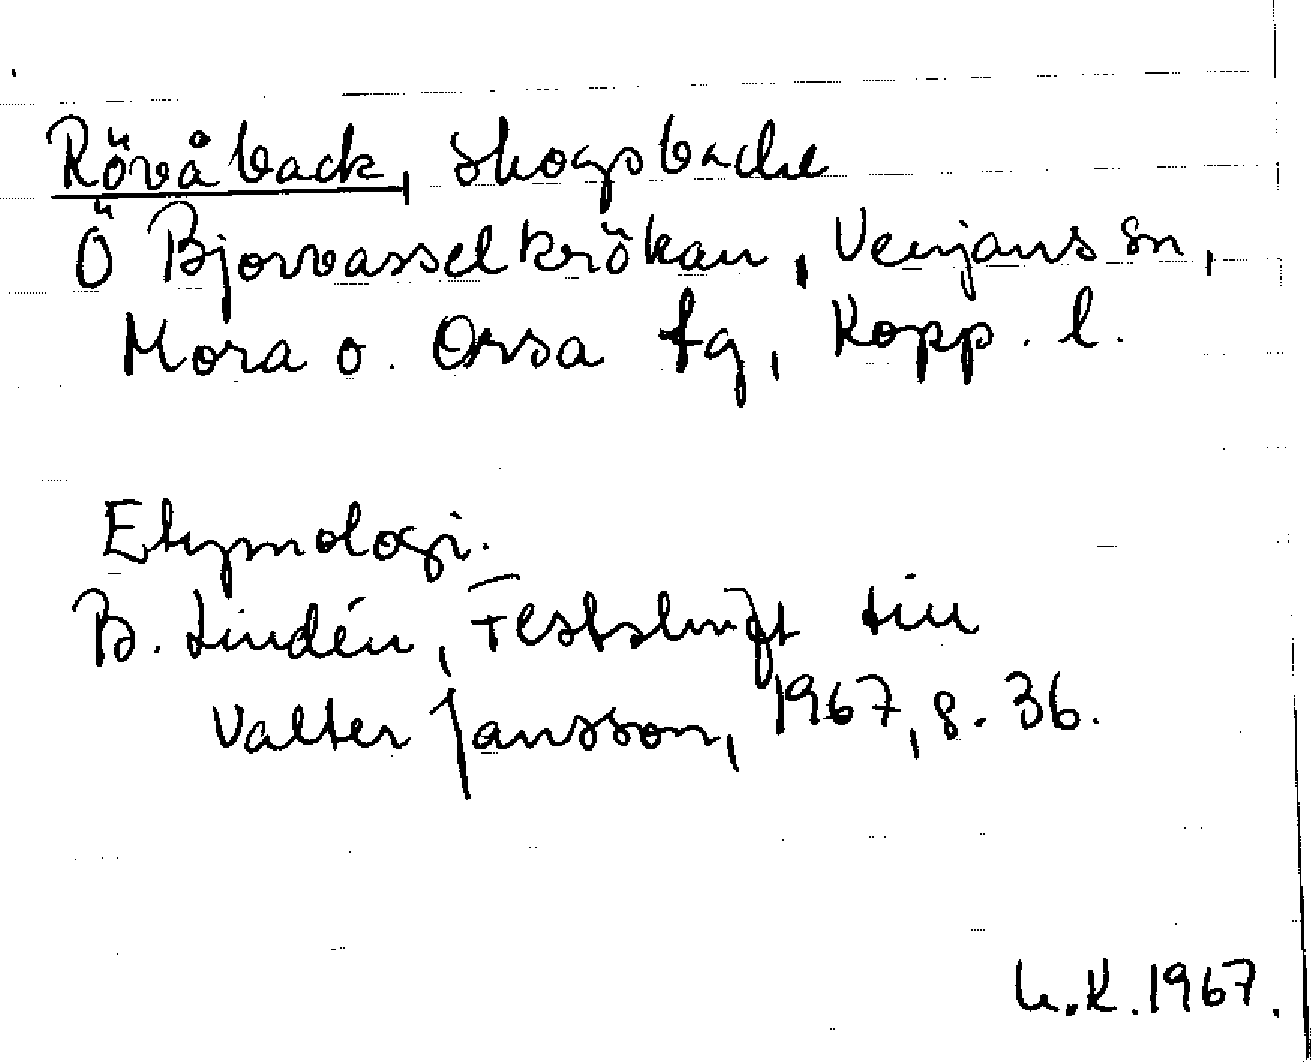 Rövåback, skogsbacke
Ö Bjorvasselkrökan, Venjans sn,
Mora o. Orsa tg, Kopp. l.
Etymologi.
B. Lindén, Festskrift till
Valter Jansson, 1967, s. 36.
K. 1967.